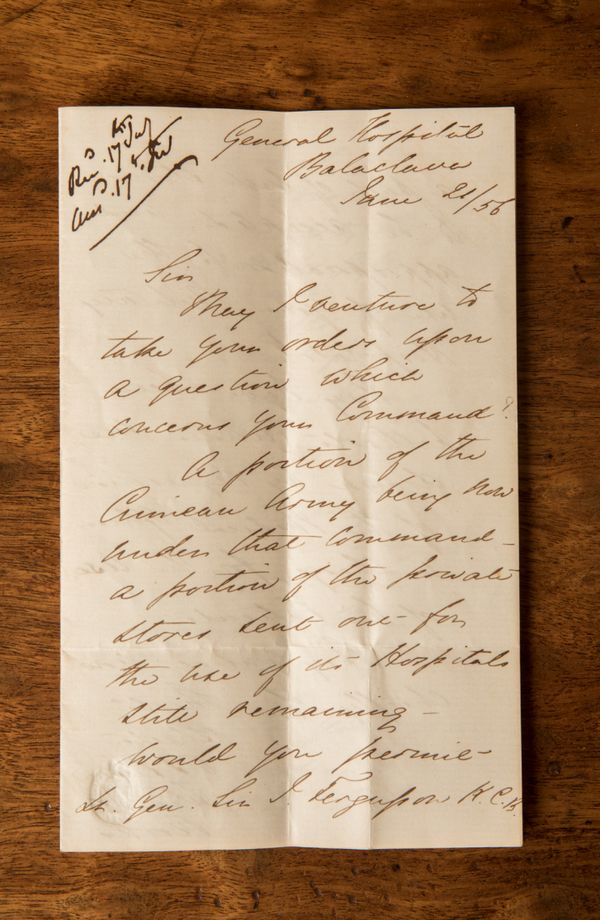 Rec. 17 July
Ans. 17
General Hospital
Balaclava
June 21/56
Sir
May I venture to
take your orders upon
a question which
concerns your Command?
A portion of the
Crimean Army being now
under that Command -
a portion of the private
stores sent out for
the use of its Hospitals
still remaining -
would you permit
Lt. Gen. Sir J. Fergusson K.C.B.